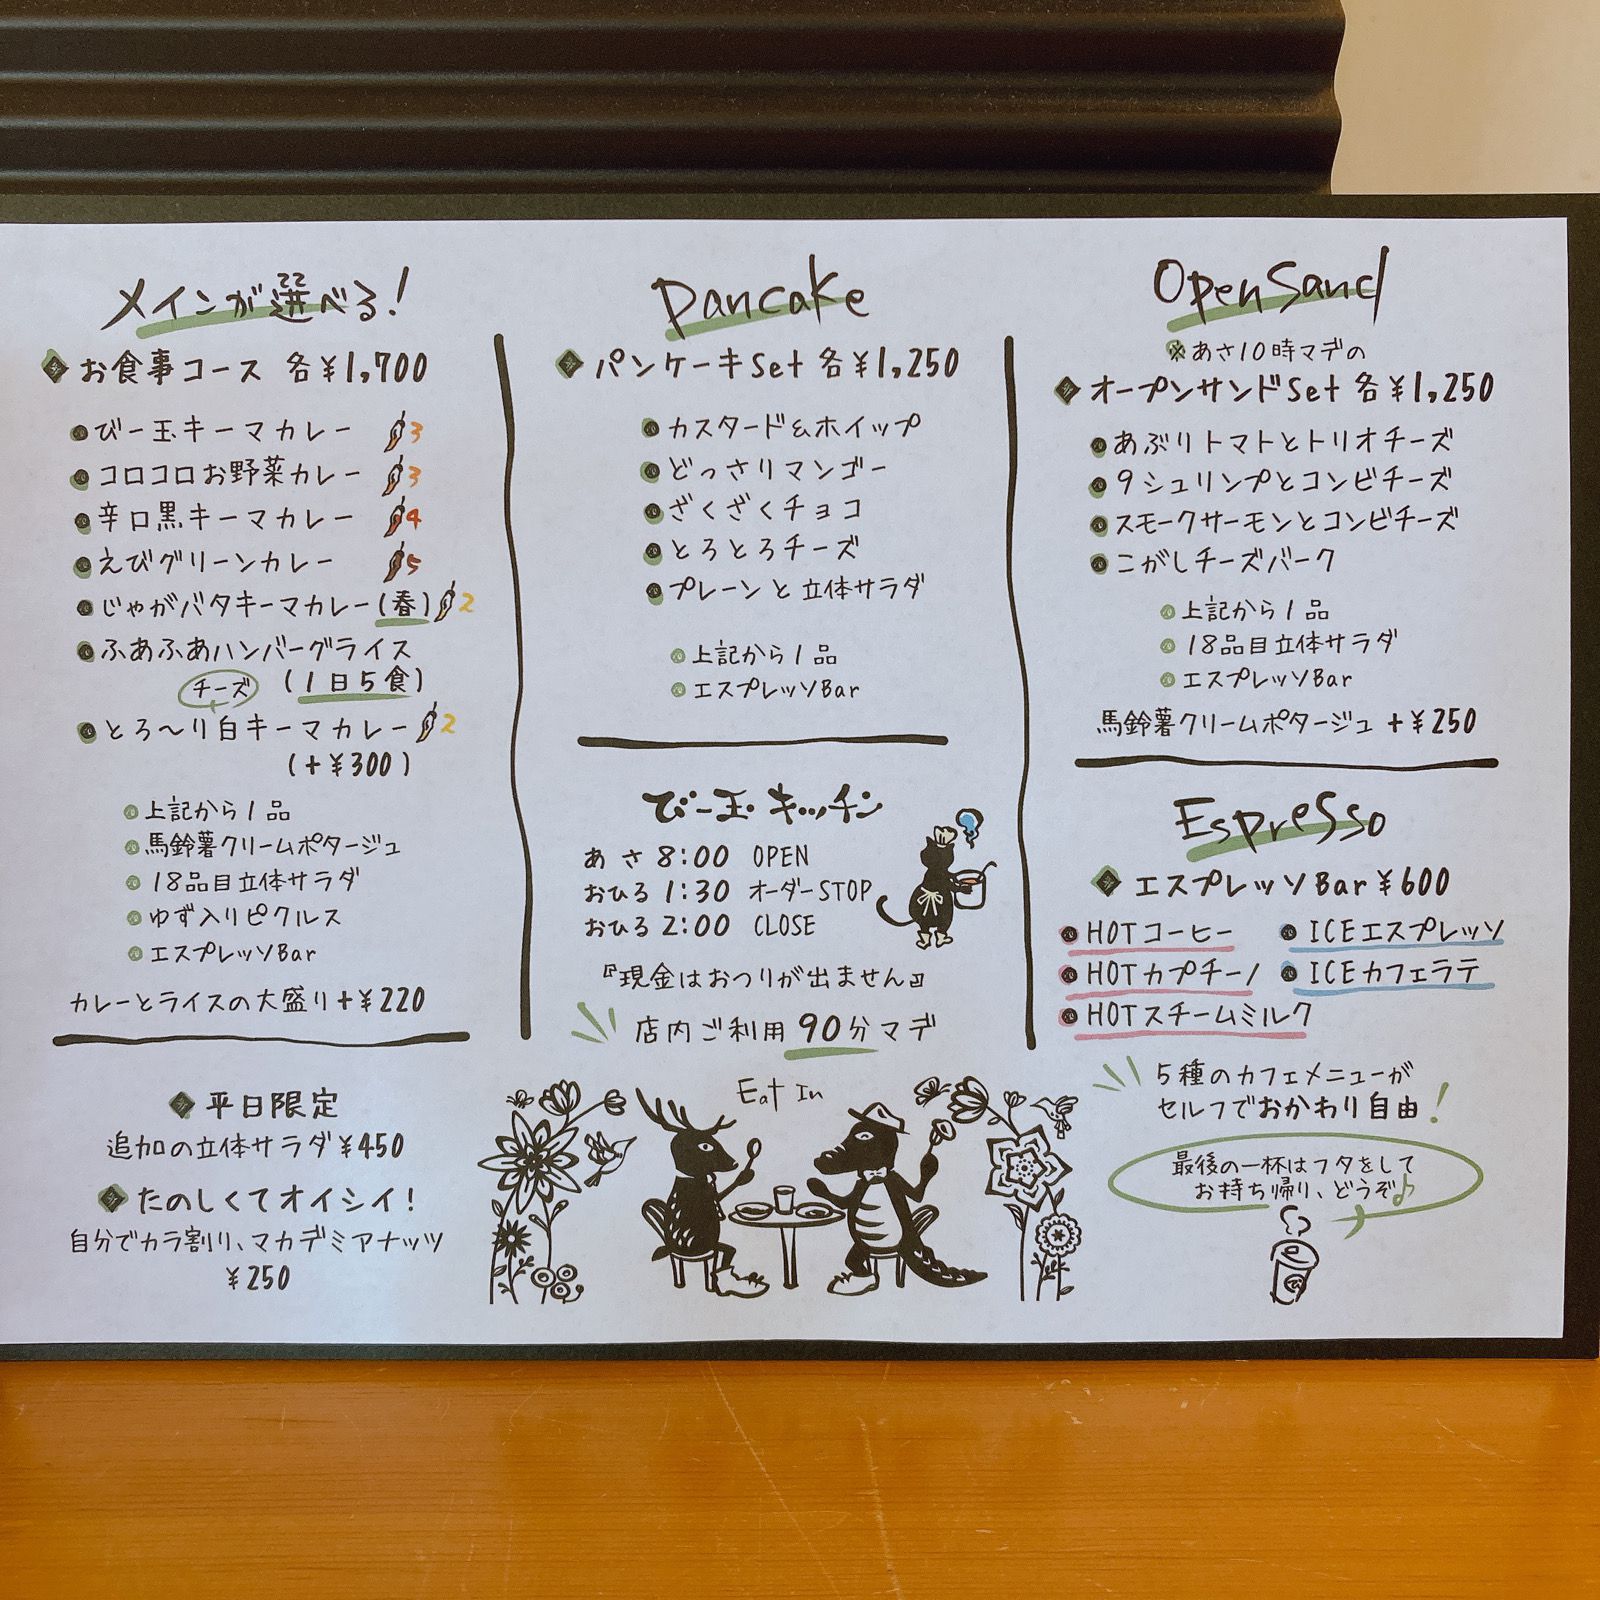 メインが選べる!
お食事コース 各¥1,700
びー玉キーマカレー 3
コロコロお野菜カレー 3
辛口黒キーマカレー 4
えびグリーンカレー 5
じゃがバタキーマカレー(春) 2
ふあふあハンバーグライス
(1日5食)
チーズ
とろ〜り白キーマカレー 2
(+¥300)
上記から1品
馬鈴薯クリームポタージュ
18品目立体サラダ
ゆず入りピクルス
エスプレッソBar
カレーとライスの大盛り+¥220
平日限定
追加の立体サラダ¥450
たのしくてオイシイ!
自分でカラ割り、マカデミアナッツ
¥250
Pancake
パンケーキSet 各¥1,250
カスタード&ホイップ
どっさりマンゴー
ざくざくチョコ
とろとろチーズ
プレーンと立体サラダ
上記から1品
エスプレッソBar
びー玉キッチン
あさ 8:00 OPEN
おひる 1:30 オーダーSTOP
おひる 2:00 CLOSE
『現金はおつりが出ません』
店内ご利用90分マデ
Eat In
OpenSand
※あさ10時マデの
オープンサンドSet 各¥1,250
あぶりトマトとトリオチーズ
9シュリンプとコンビチーズ
スモークサーモンとコンビチーズ
こがしチーズバーク
上記から1品
18品目立体サラダ
エスプレッソBar
馬鈴薯クリームポタージュ +¥250
Espresso
エスプレッソBar¥600
HOTコーヒー ICEエスプレッソ
HOTカプチーノ ICEカフェラテ
HOTスチームミルク
5種のカフェメニューが
セルフでおかわり自由!
最後の一杯はフタをして
お持ち帰り、どうぞ♪